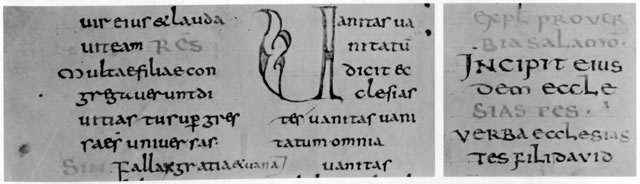 uir eius & lauda
uit eam RES
Multae filiae con
gregauerunt di
uitias tu supgres
sa es uniuersas.
SIN Fallax gratia & uana
Uanitas ua
nitatū
dicit ec
clesias
tes uanitas uani
tatum omnia
uanitas
EXPL PROVER
BIA SALAMŌ.
INCIPIT EIUS
DEM ECCLE
SIASTES.
VERBA ECCLESIAS
TES FILI DAVID